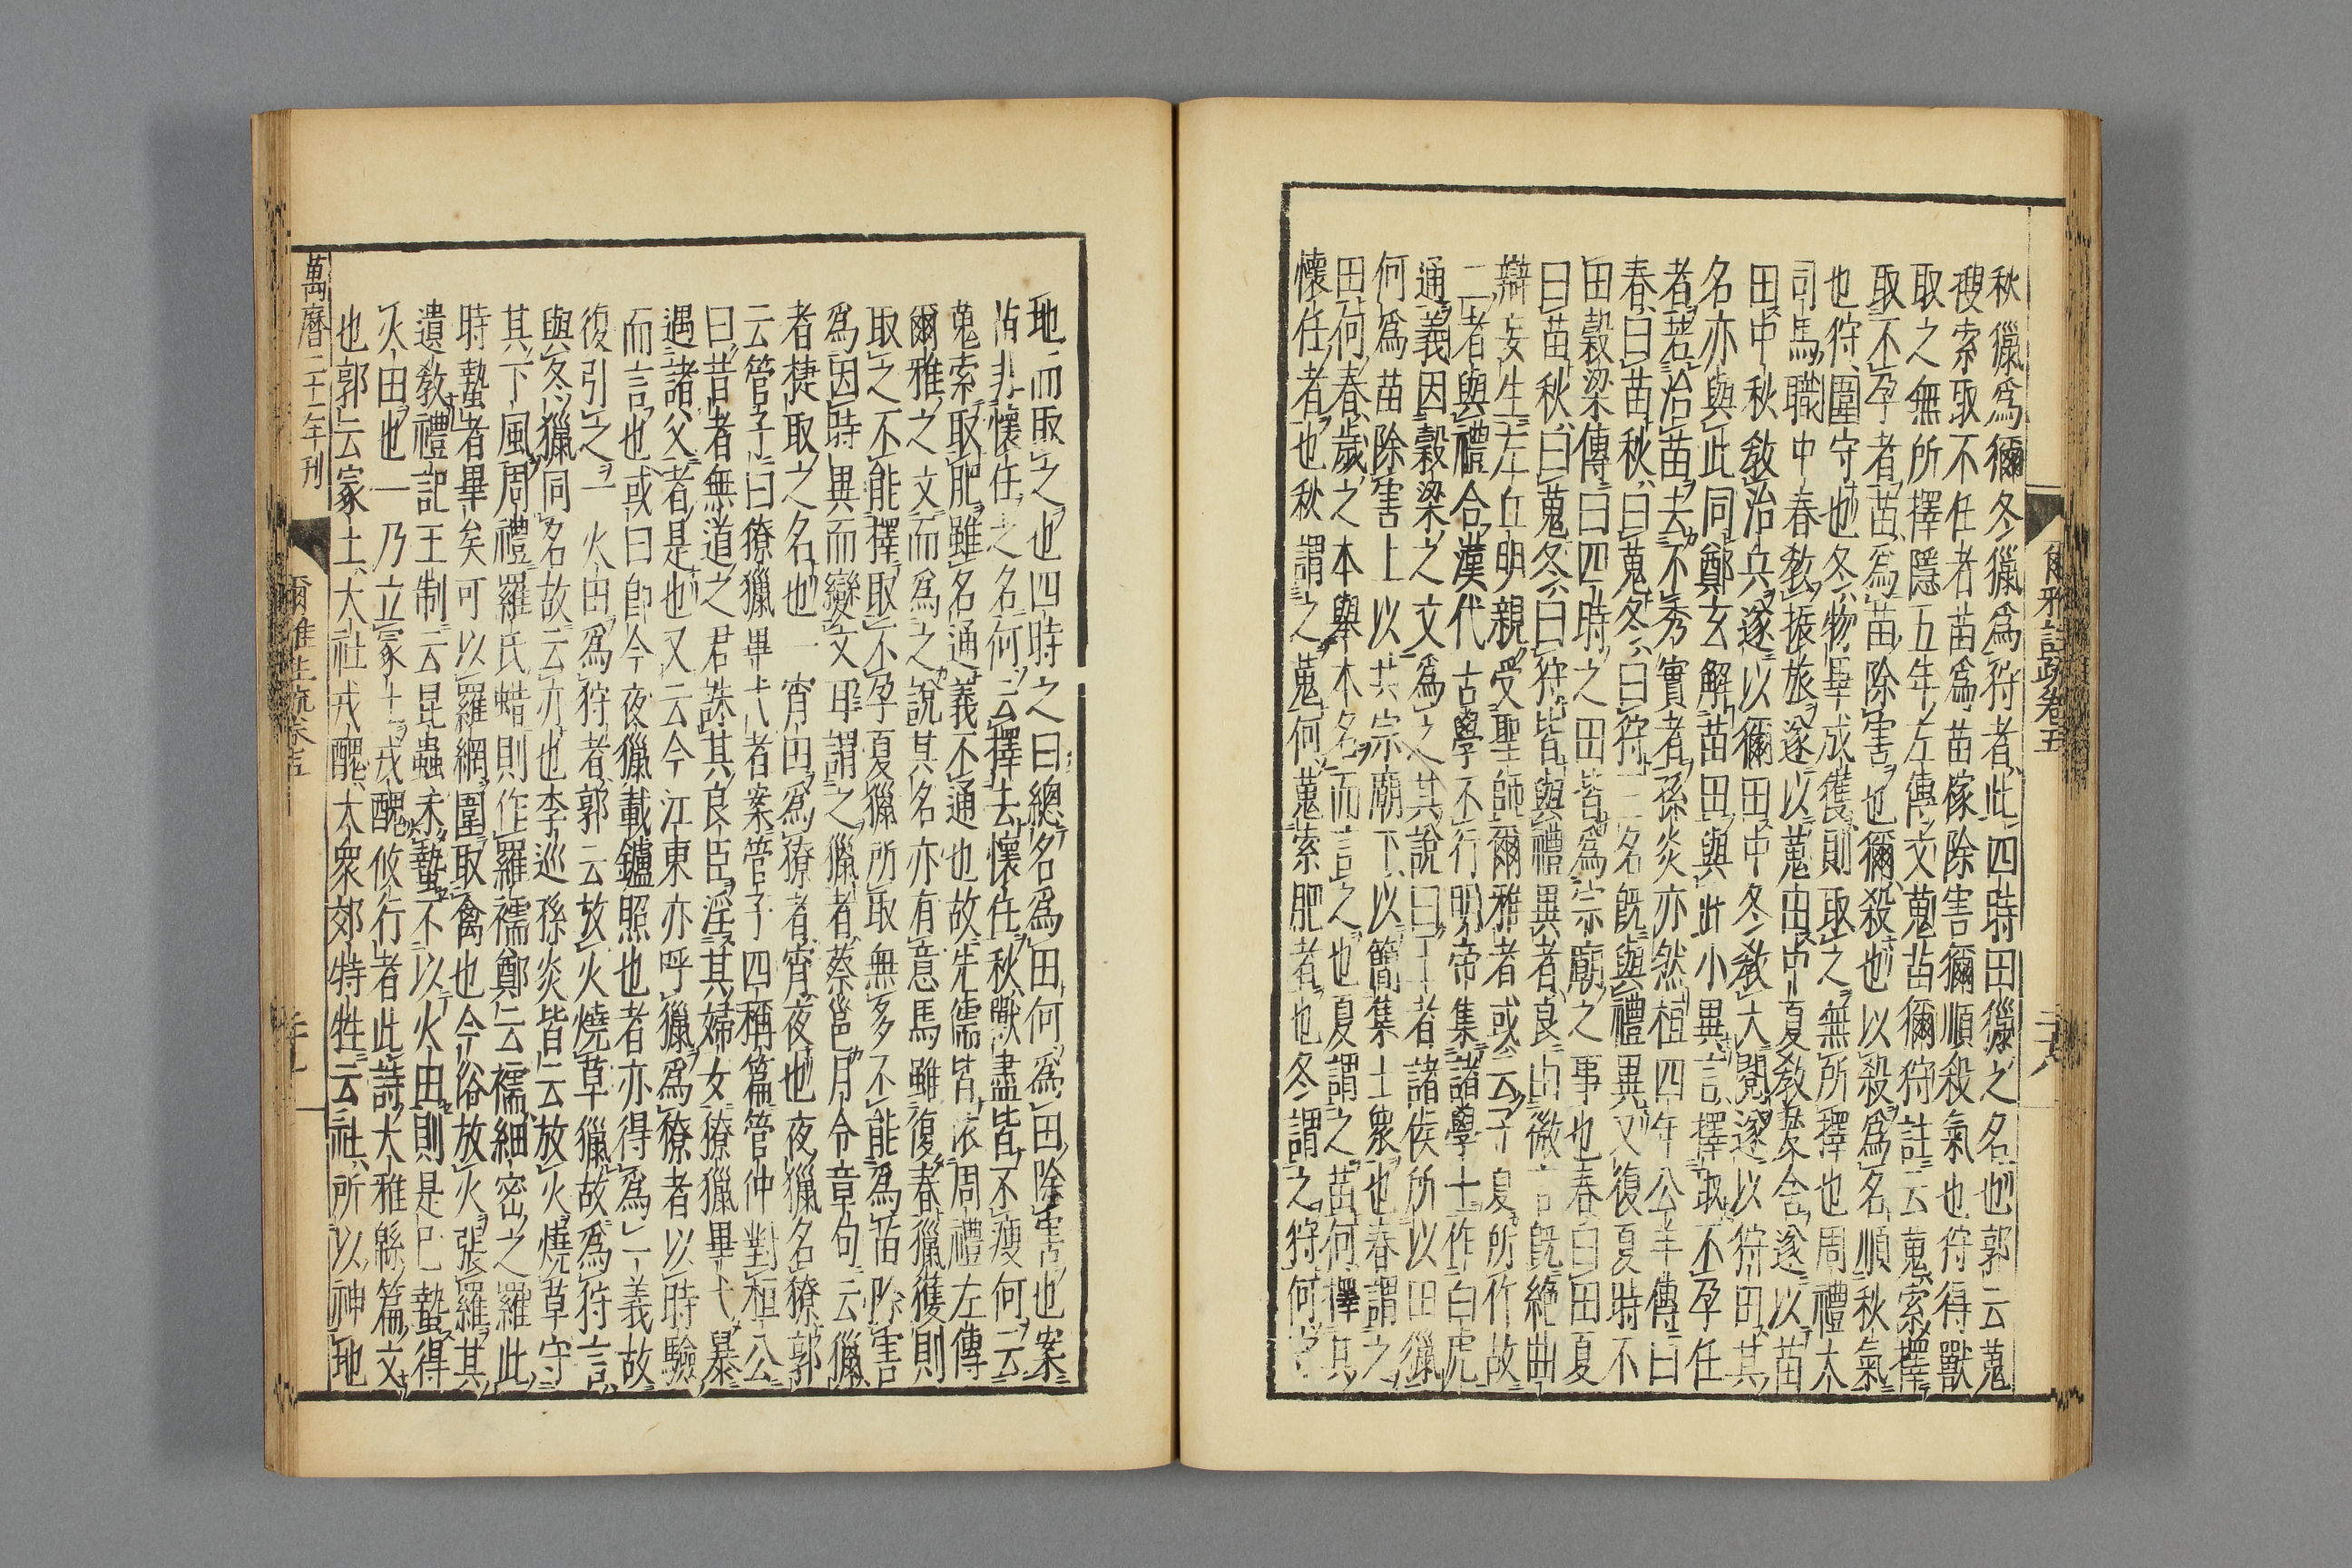 爾雅註疏卷五
秋獵爲獮冬獵爲狩者此四時田獵之名也郭云蒐
𢯱索取不任者苗爲苗稼除害獮順殺氣也狩得獸
取之無所擇隱五年左傳文蒐苗獮狩註云蒐索擇
取不孕者苗爲苗除害也獮殺也以殺爲名順秋氣
也狩圍守也冬物畢成獲則取之無所擇也周禮大
司馬職中春教振旅遂以蒐田中夏教茇舍遂以苗
田中秋教治兵遂以獮田中冬教大閱遂以狩田其
名亦與此同鄭玄解苗田與此小異言擇取不孕任
者若治苗去不秀實者孫炎亦然桓四年公羊傳曰
春曰苗秋曰蒐冬曰狩三名旣與禮異又復夏時不
田穀梁傳曰四時之田皆爲宗廟之事也春曰田夏
曰苗秋曰蒐冬曰狩皆與禮異者良由微言旣絶曲
辯妄生左丘明親受聖師爾雅者或云子夏所作故
二者與禮合漢代古學不行明帝集諸學士作白虎
通義因穀梁之文爲之其說曰王者諸侯所以田獵
何爲苗除害上以共宗廟下以簡集士衆也春謂之
田何春歲之本舉本名而言之也夏謂之苗何擇其
懷任者也秋謂之蒐何蒐索肥者也冬謂之狩何守
地而取之也四時之曰總名爲田何爲田除害也案
苗非懷任之名何云擇去懷任秋獸盡皆不瘦何云
蒐索取肥雖名通義不通也故先儒皆依周禮左傳
爾雅之文而爲之說其名亦有意焉雖復春獵獲則
取之不能擇取不孕夏獵所取無多不能爲苗除害
爲因時異而變文耳謂之獵者蔡邕月令章句云獵
者捷取之名也一宵田爲獠者宵夜也夜獵名獠郭
云管子曰獠獵畢弋者案管子四稱篇管仲對桓公
曰昔者無道之君誅其良臣淫其婦女獠獵畢弋暴
遇諸父者是也又云今江東亦呼獵爲獠者以時驗
而言也或曰卽今夜獵載鑪照也者亦得爲一義故
復引之一火田爲狩者郭云放火燒草獵故爲狩言
與冬獵同名故云亦也李巡孫炎皆云放火燒草守
其下風周禮羅氏蜡則作羅襦鄭云襦細密之羅此
時蟄者畢矣可以羅網圍取禽也今俗放火張羅其
遺教禮記王制云昆蟲未蟄不以火田則是已蟄得
火田也一乃立冢土戎醜攸行者此詩大雅緜篇文
也郭云冢土大社戎醜大衆郊特牲云社所以神地
萬曆二十一年刊
爾雅註疏卷五